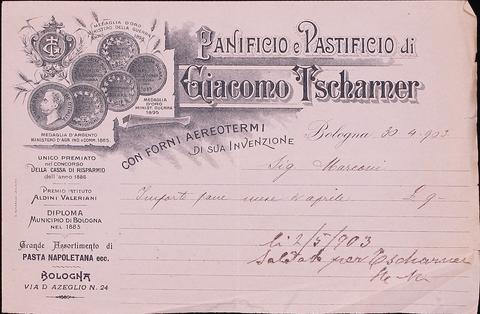 MEDAGLIA D'ORO
MINISTRO DELLA GUERRA
PANIFICIO e PASTIFICIO di
Giacomo Tscharner
MEDAGLIA
D'ORO
MINIST. GUERRA
1895
MEDAGLIA D'ARGENTO
MINISTERO D'AGR. IND. e COMM. 1885.
CON FORNI AEREOTERMI
DI SUA INVENZIONE
Bologna 30 4 903
UNICO PREMIATO
nel CONCORSO
DELLA CASSA DI RISPARMIO
dell'anno 1886
Sig. Marconi
PREMIO ISTITUTO
ALDINI VALERIANI
Importo pane mese d'aprile £ 9-
DIPLOMA
MUNICIPIO DI BOLOGNA
NEL 1883
Grande Assortimento di
PASTA NAPOLETANA ecc.
li 2/5/903
Saldato per Tscharner
BOLOGNA
VIA D'AZEGLIO N. 24